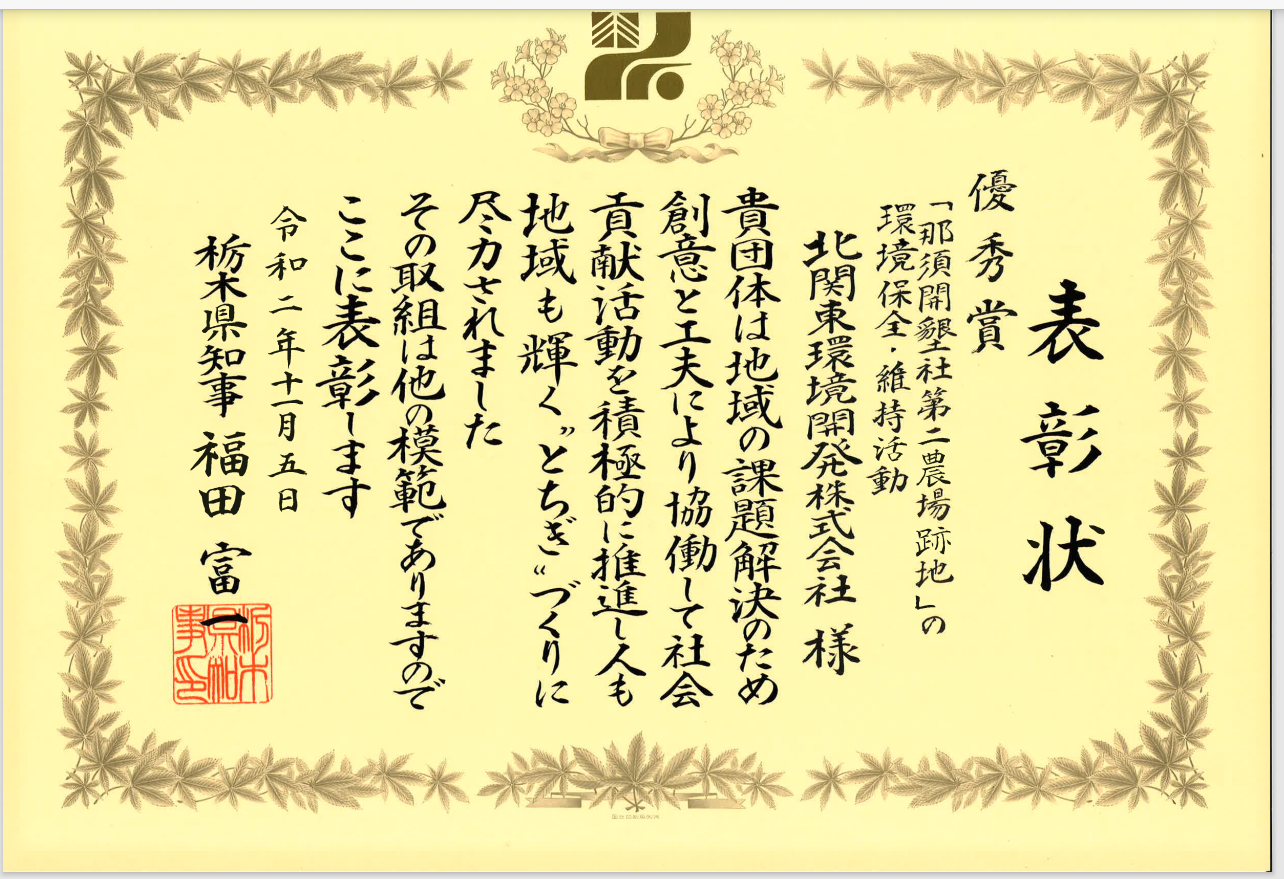 表彰状
優秀賞
「那須開墾社第二農場跡地」の
環境保全・維持活動
北関東環境開発株式会社 様
貴団体は地域の課題解決のため
創意と工夫により協働して社会
貢献活動を積極的に推進し人も
地域も輝く〟とちぎ〝づくりに
尽力されました
その取組は他の模範でありますので
ここに表彰します
令和二年十一月五日
栃木県知事 福田 富一
栃木
県知
事印